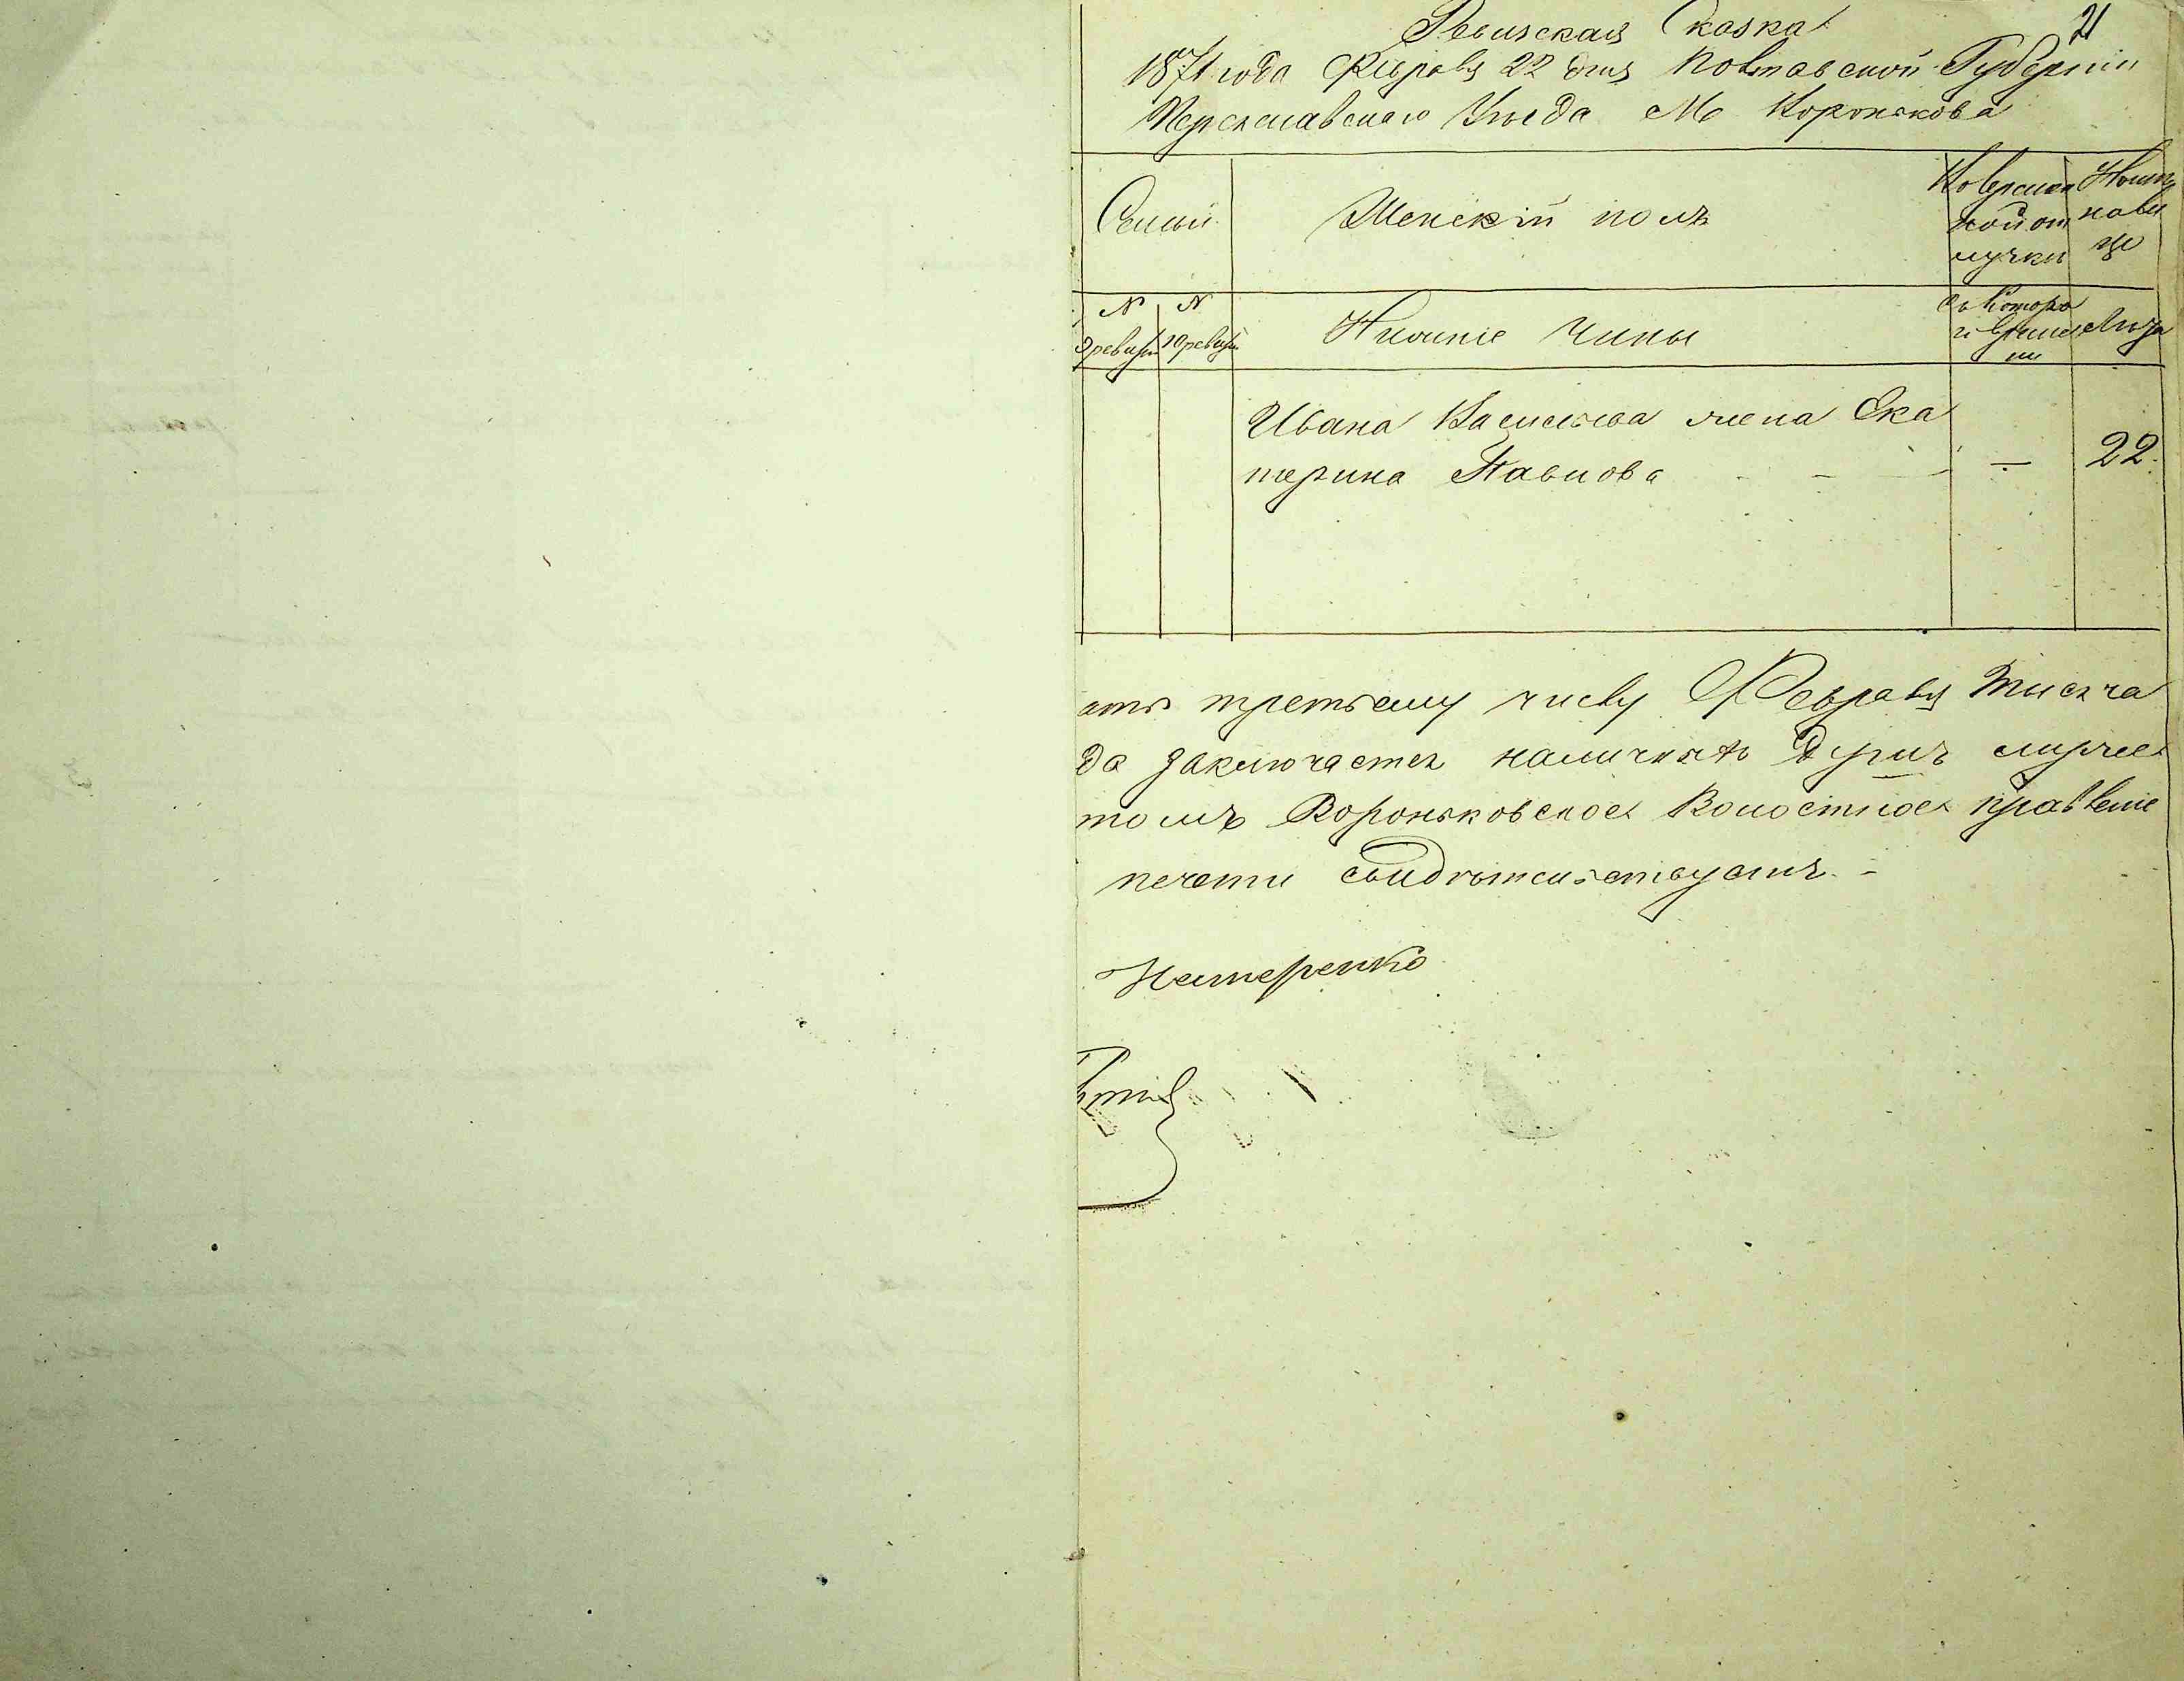 21
Ревизская Сказка
1871 года Февраля 22 дня Полтавской Губерніи
Переяславскаго Уѣзда М Воронькова
Семьи
Женскій полъ
Во времен
ной от
лучки
Нынѣ
на ли
цо
N
9 ревизіи
N
10 ревизіи
Нижніе Чины
Съ Которо
го време
ни
Лѣта
Ивана Васильева жена Ека
терина Павлова - - - - 22.
ать третьему числу Февраля Тысяча
да заключается наличныхъ душъ мужес
томъ Вороньковское Волостное правленіе
печати свидѣтельствуетъ. -
Нестеренко